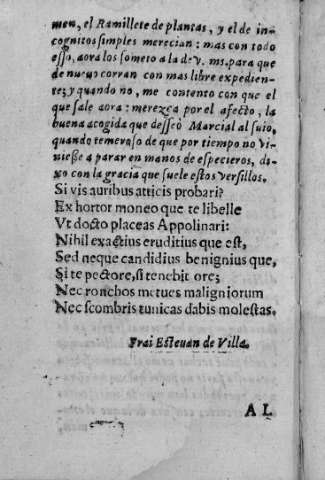 men, el Ramillete de plantas, y el de in-
cognitos simples merecian: mas con todo
esso, aora los someto a la de V. ms. para que
de nueuo corran con mas libre expedien-
te; y quando no, me contento con que el
que sale aora: merezca por el afecto, la
buena acogida que desseò Marcial al suio,
quando temeroso de que por tiempo no vi-
niesse a parar en manos de especieros, di-
xo con la gracia que suele estos versillos.
Si vis auribus atticis probari?
Ex hortor moneo que te libelle
Vt docto placeas Appolinari:
Nihil exactius eruditius que est,
Sed neque candidius benignius que,
Si te pectore, si tenebit ore;
Nec ronchos metues maligniorum
Nec scombris tunicas dabis molestas.
Frai Esteuan de Villa.
AL